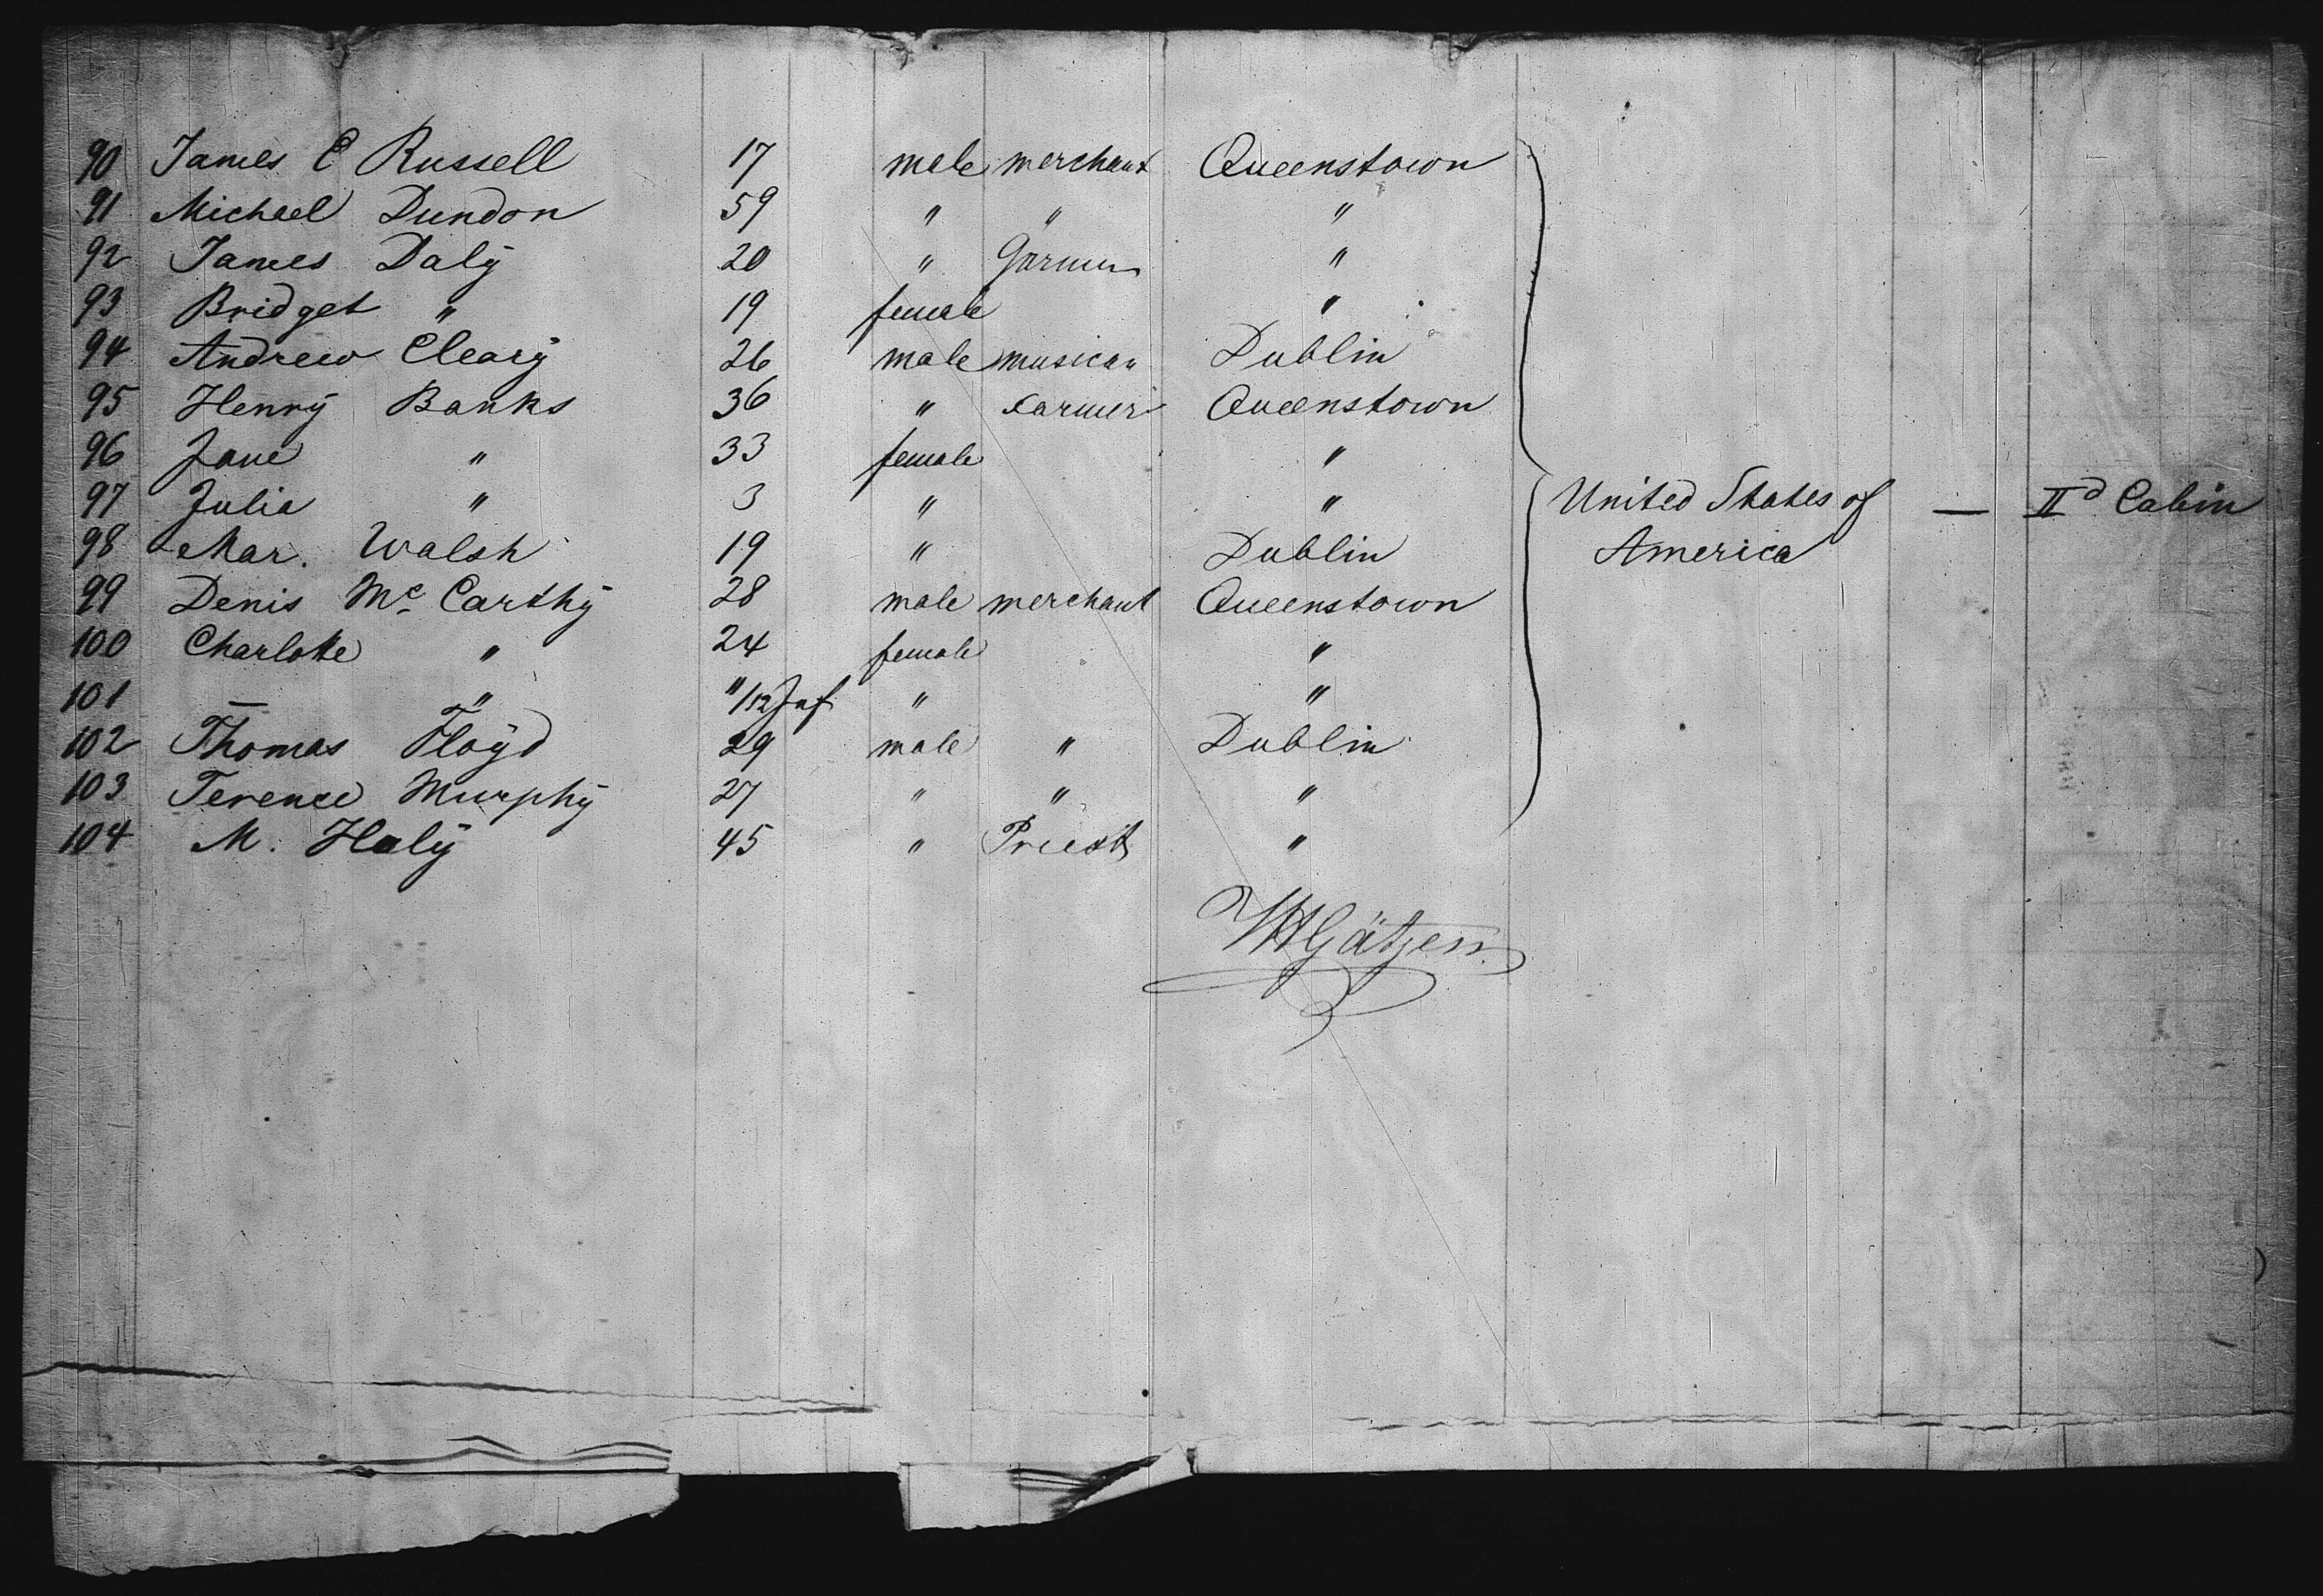 90 James C Russell 17 male merchant Queenstown
91 Michael Dundon 59 " " "
92 James Daly 20 " Garmer "
93 Bridget " 19 female "
94 Andrew Cleary 26 male musican Dublin
95 Henry Banks 36 " Farmer Queenstown
96 Jane " 33 female "
97 Julia " 3 " " United States of — IId Cabin
98 Mar. Walsh 19 " Dublin America
99 Denis Mc Carthy 28 male merchant Queenstown
100 Charlotte " 24 female "
101 — " 11/12 Inf " "
102 Thomas Floyd 29 male " Dublin
103 Terence Murphy 27 " " "
104 M. Haly 45 " Priest "